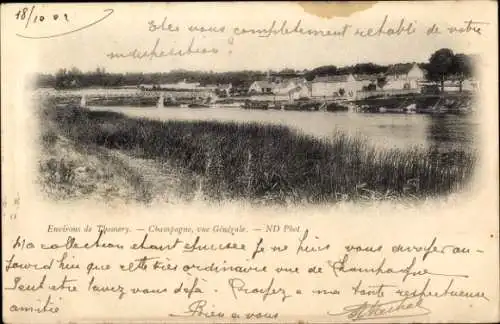 18/10 02
Etes vous complètement retabli de votre
indisposition ?
Environs de Thomery. - Champagne, vue Générale. - ND Phot.
Ma collection étant épuisée Je ne puis vous envoyer au-
jourd'hui que cette très ordinaire vue de Champagne
peut être l'avez vous déjà. Priez à ma tante respectueuse
amitié
Bien a vous